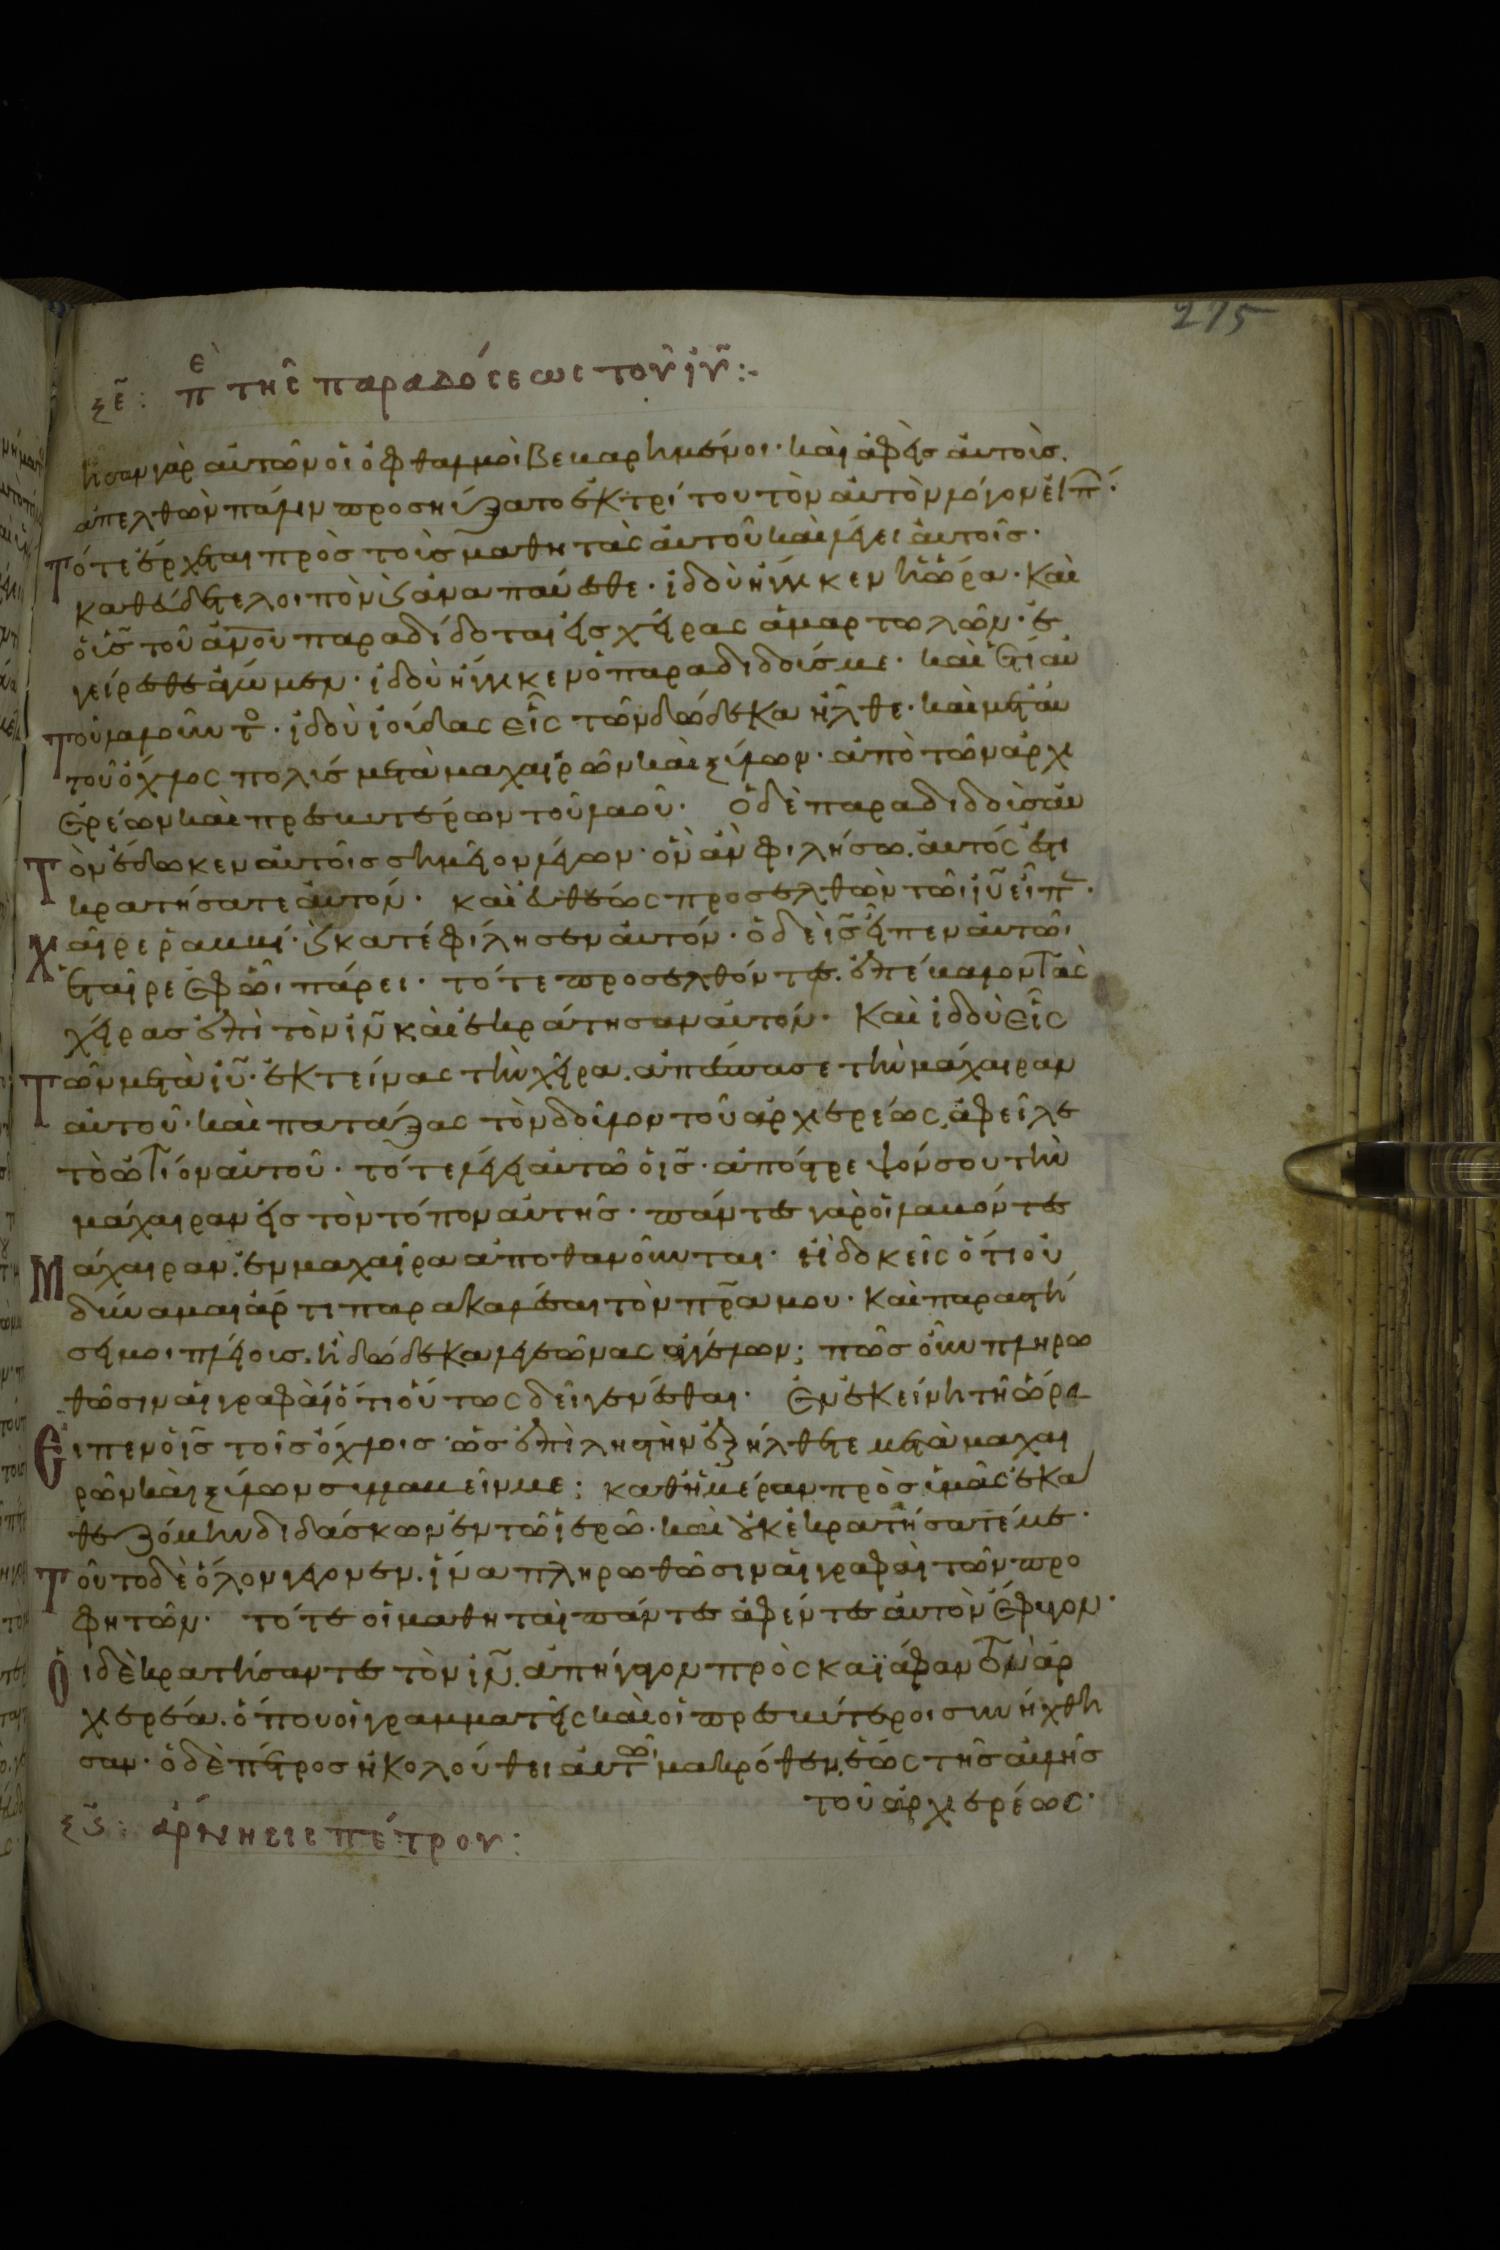 275
ξε̄: πὲ τῆς παραδόσεως τοῦ ἰῦ:-
ἦσαν γὰρ αὐτῶν οἱ ὀφθαλμοὶ βεβαρημένοι· καὶ ἀφεὶς αὐτοὺς.
ἀπελθὼν πάλιν προσηύξατο ἐκ τρίτου τὸν αὐτὸν λόγον εἰπ·
Τότε ἔρχεται πρὸς τοὺς μαθητὰς αὐτοῦ καὶ λέγει αὐτοῖς·
καθεύδετε λοιπὸν καὶ ἀναπαύεσθε· ἰδοὺ ἤγγικεν ἡ ὥρα· καὶ
ὁ ῑς τοῦ ἀν̅ου παραδίδοται εἰς χεῖρας ἁμαρτωλῶν· ἐ
γείρεσθε ἄγωμεν· ἰδοὺ ἤγγικεν ὁ παραδιδούς με· καὶ ἔτι αὐ
Τοῦ λαλοῦντο· ἰδοὺ ἰούδας εἷς τῶν δώδεκα ἦλθε· καὶ μετ' αὐ
τοῦ ὄχλος πολὺς μετὰ μαχαιρῶν καὶ ξύλων· ἀπὸ τῶν ἀρχι
ερέων καὶ πρεσβυτέρων τοῦ λαοῦ· Ὁ δὲ παραδιδοὺς αὐ
Τὸν ἔδωκεν αὐτοῖς σημεῖον λέγων· ὃν ἂν φιλήσω. αὐτός ἐστι
κρατήσατε αὐτόν· καὶ εὐθέως προσελθὼν τῶι ἰῦ εἶπ·
Χαῖρε ῥαββί· καὶ κατεφίλησεν αὐτόν· ὁ δὲ ῑς εἶπεν αὐτῶι
ἑταῖρε ἐφ' ᾧι πάρει· τότε προσελθόντες. ἐπέβαλον τὰς
χεῖρας ἐπὶ τὸν ἰν̅ καὶ ἐκράτησαν αὐτόν· Καὶ ἰδοὺ εἷς
Τῶν μετὰ ἰῦ· ἐκτείνας τὴν χεῖρα. ἀπέσπασε τὴν μάχαιραν
αὐτοῦ· καὶ πατάξας τὸν δοῦλον τοῦ ἀρχιερέως, ἀφεῖλε
τὸ ὠτίον αὐτοῦ· τότε λέγει αὐτῶ ὁ ῑς· ἀπόστρεψόν σου τὴν
μάχαιραν εἰς τὸν τόπον αὐτῆς· πάντες γὰρ οἱ λαβόντες
Μάχαιραν. ἐν μαχαίρα ἀποθανοῦνται· ἢ δοκεῖς ὅτι οὐ
δύναμαι ἄρτι παρακαλέσαι τὸν πρ̅α μου· καὶ παραστή
σει μοι πλείους. ἢ δώδεκα λεγεῶνας ἀγγέλων; πῶς οὖν πληρω
θῶσιν αἱ γραφαὶ ὅτι οὕτως δεῖ γενέσθαι· Ἐν ἐκείνη τῆ ὥρα
Εἶπεν ὁ ῑς τοῖς ὄχλοις· ὡς ἐπὶ ληστὴν ἐξήλθετε μετὰ μαχαι
ρῶν καὶ ξύλων συλλαβεῖν με; καθ' ἡμέραν πρὸς ὑμᾶς ἐκα
θεζόμην διδάσκων ἐν τῶ ἱερῶ· καὶ οὐκ ἐκρατήσατέ με·
Τοῦτο δὲ ὅλον γέγονεν. ἵνα πληρωθῶσιν αἱ γραφαὶ τῶν προ
φητῶν· τότε οἱ μαθηταὶ πάντες ἀφέντες αὐτὸν ἔφυγον·
Οἱ δὲ κρατήσαντες τὸν ἰν̅. ἀπήγαγον πρὸς καϊάφαν τὸν ἀρ
χιερέα. ὅπου οἱ γραμματεῖς καὶ οἱ πρεσβύτεροι συνήχθη
σαν· ὁ δὲ πέτρος ἠκολούθει αὐτῶι μακρόθεν, ἕως τῆς αὐλῆς
τοῦ ἀρχιερέως·
ξϛ̄: ἀρνησις πέτρου: